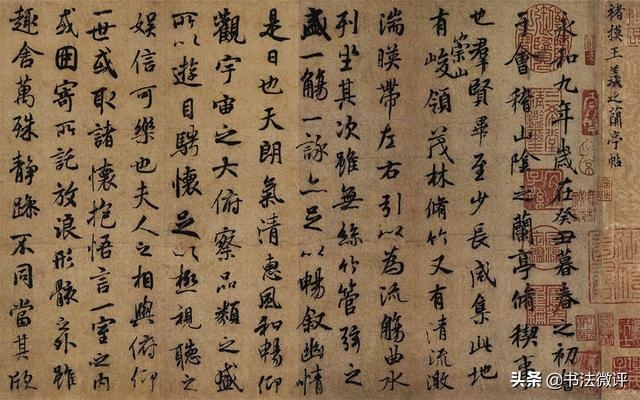 褚摸王羲之蘭亭帖
永和九年歲在癸丑暮春之初會
于會稽山陰之蘭亭脩稧事
也羣賢畢至少長咸集此地
有崇山峻領茂林脩竹又有清流激
湍暎帶左右引以為流觴曲水
列坐其次雖無絲竹管弦之
盛一觴一詠亦足以暢叙幽情
是日也天朗氣清惠風和暢仰
觀宇宙之大俯察品類之盛
所以遊目騁懷足以極視聽之
娛信可樂也夫人之相與俯仰
一世或取諸懷抱悟言一室之內
或因寄所託放浪形骸之外雖
趣舍萬殊靜躁不同當其欣
头条 @书法微评